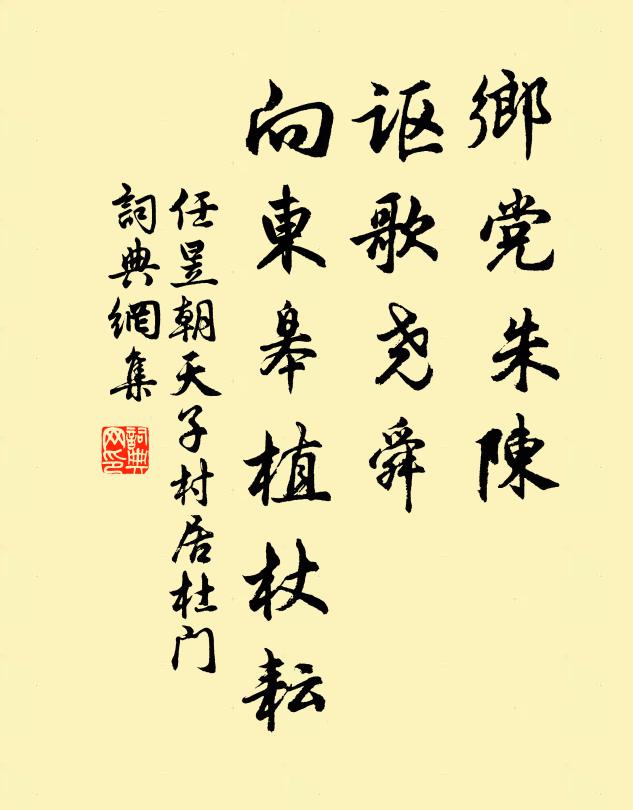 鄉党朱陳
讴歌尧舜
向東皋植杖耘
任昱朝天子村居杜门
詞典網集
詞典
网印